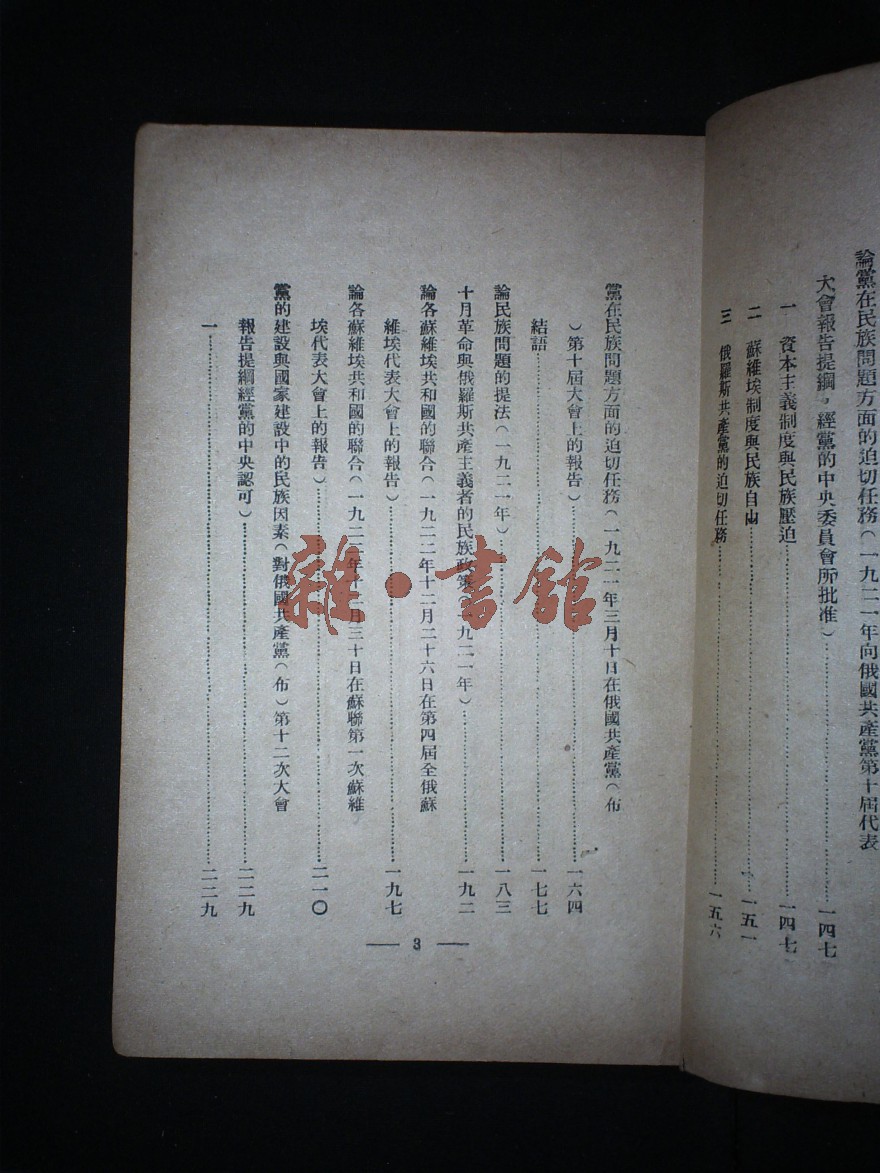 論黨在民族問題方面的迫切任務(一九二一年向俄國共產黨第十屆代表
大會報告提綱,經黨的中央委員會所批准)……一四七
一 資本主義制度與民族壓迫……一四七
二 蘇維埃制度與民族自由……一五一
三 俄羅斯共產黨的迫切任務……一五六
黨在民族問題方面的迫切任務(一九二一年三月十日在俄國共產黨(布
)第十屆大會上的報告)……一六四
結語……一七七
論民族問題的提法(一九二一年)……一八三
十月革命與俄羅斯共產主義者的民族政策(一九二一年)……一九二
論各蘇維埃共和國的聯合(一九二二年十二月二十六日在第四屆全俄蘇
維埃代表大會上的報告)……一九七
論各蘇維埃共和國的聯合(一九二二年十二月三十日在蘇聯第一次蘇維
埃代表大會上的報告)……二一〇
黨的建設與國家建設中的民族因素(對俄國共產黨(布)第十二次大會
報告提綱經黨的中央認可)……二二九
一……二二九
— 3 —
雜·書館